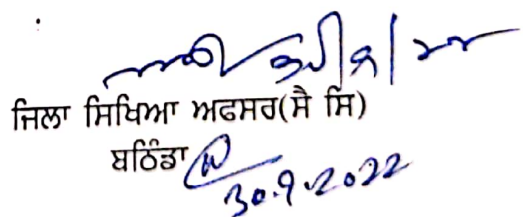 ਜਿਲਾ ਸਿਖਿਆ ਅਫਸਰ(ਸੈ ਸਿ)
ਬਠਿੰਡਾ
30.9.2022